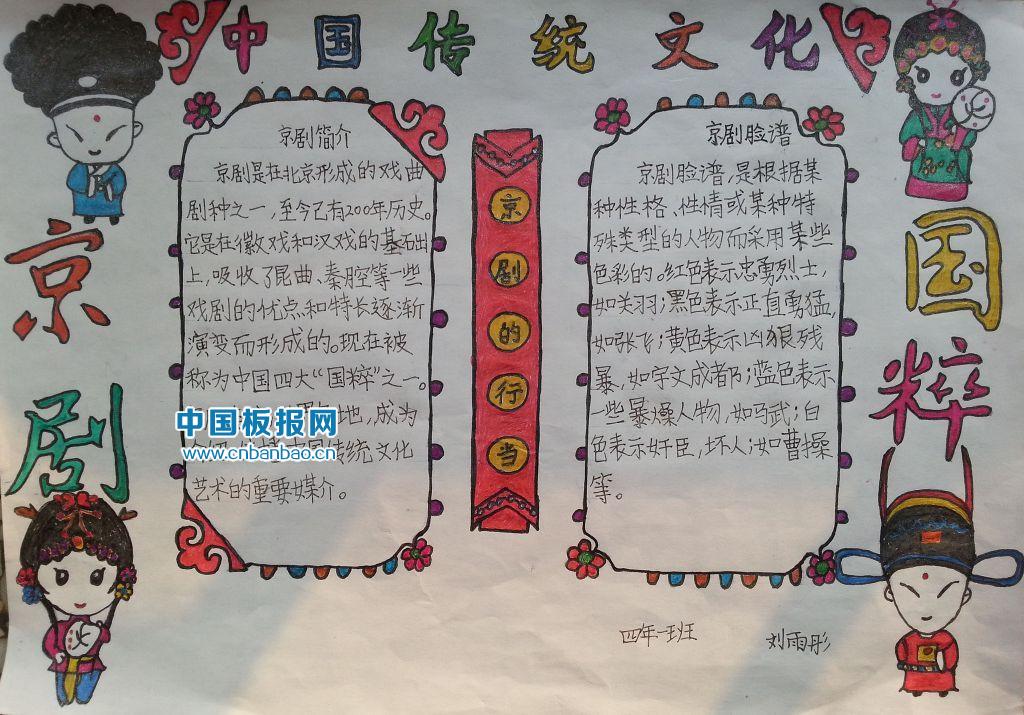 中国传统文化
京剧
国粹
京剧简介
京剧是在北京形成的戏曲
剧种之一，至今已有200年历史。
它是在徽戏和汉戏的基础
上，吸收了昆曲、秦腔等一些
戏剧的优点和特长逐渐
演变而形成的。现在被
称为中国四大“国粹”之一。
地，成为
中国传统文化
艺术的重要媒介。
中国板报网
www.cnbanbao.cn
京剧的行当
京剧脸谱
京剧脸谱，是根据某
种性格、性情或某种特
殊类型的人物而采用某些
色彩的。红色表示忠勇烈士，
如关羽；黑色表示正直勇猛，
如张飞；黄色表示凶狠残
暴，如宇文成都；蓝色表示
一些暴燥人物，如马武；白
色表示奸臣，坏人；如曹操
等。
四年一班 刘雨彤